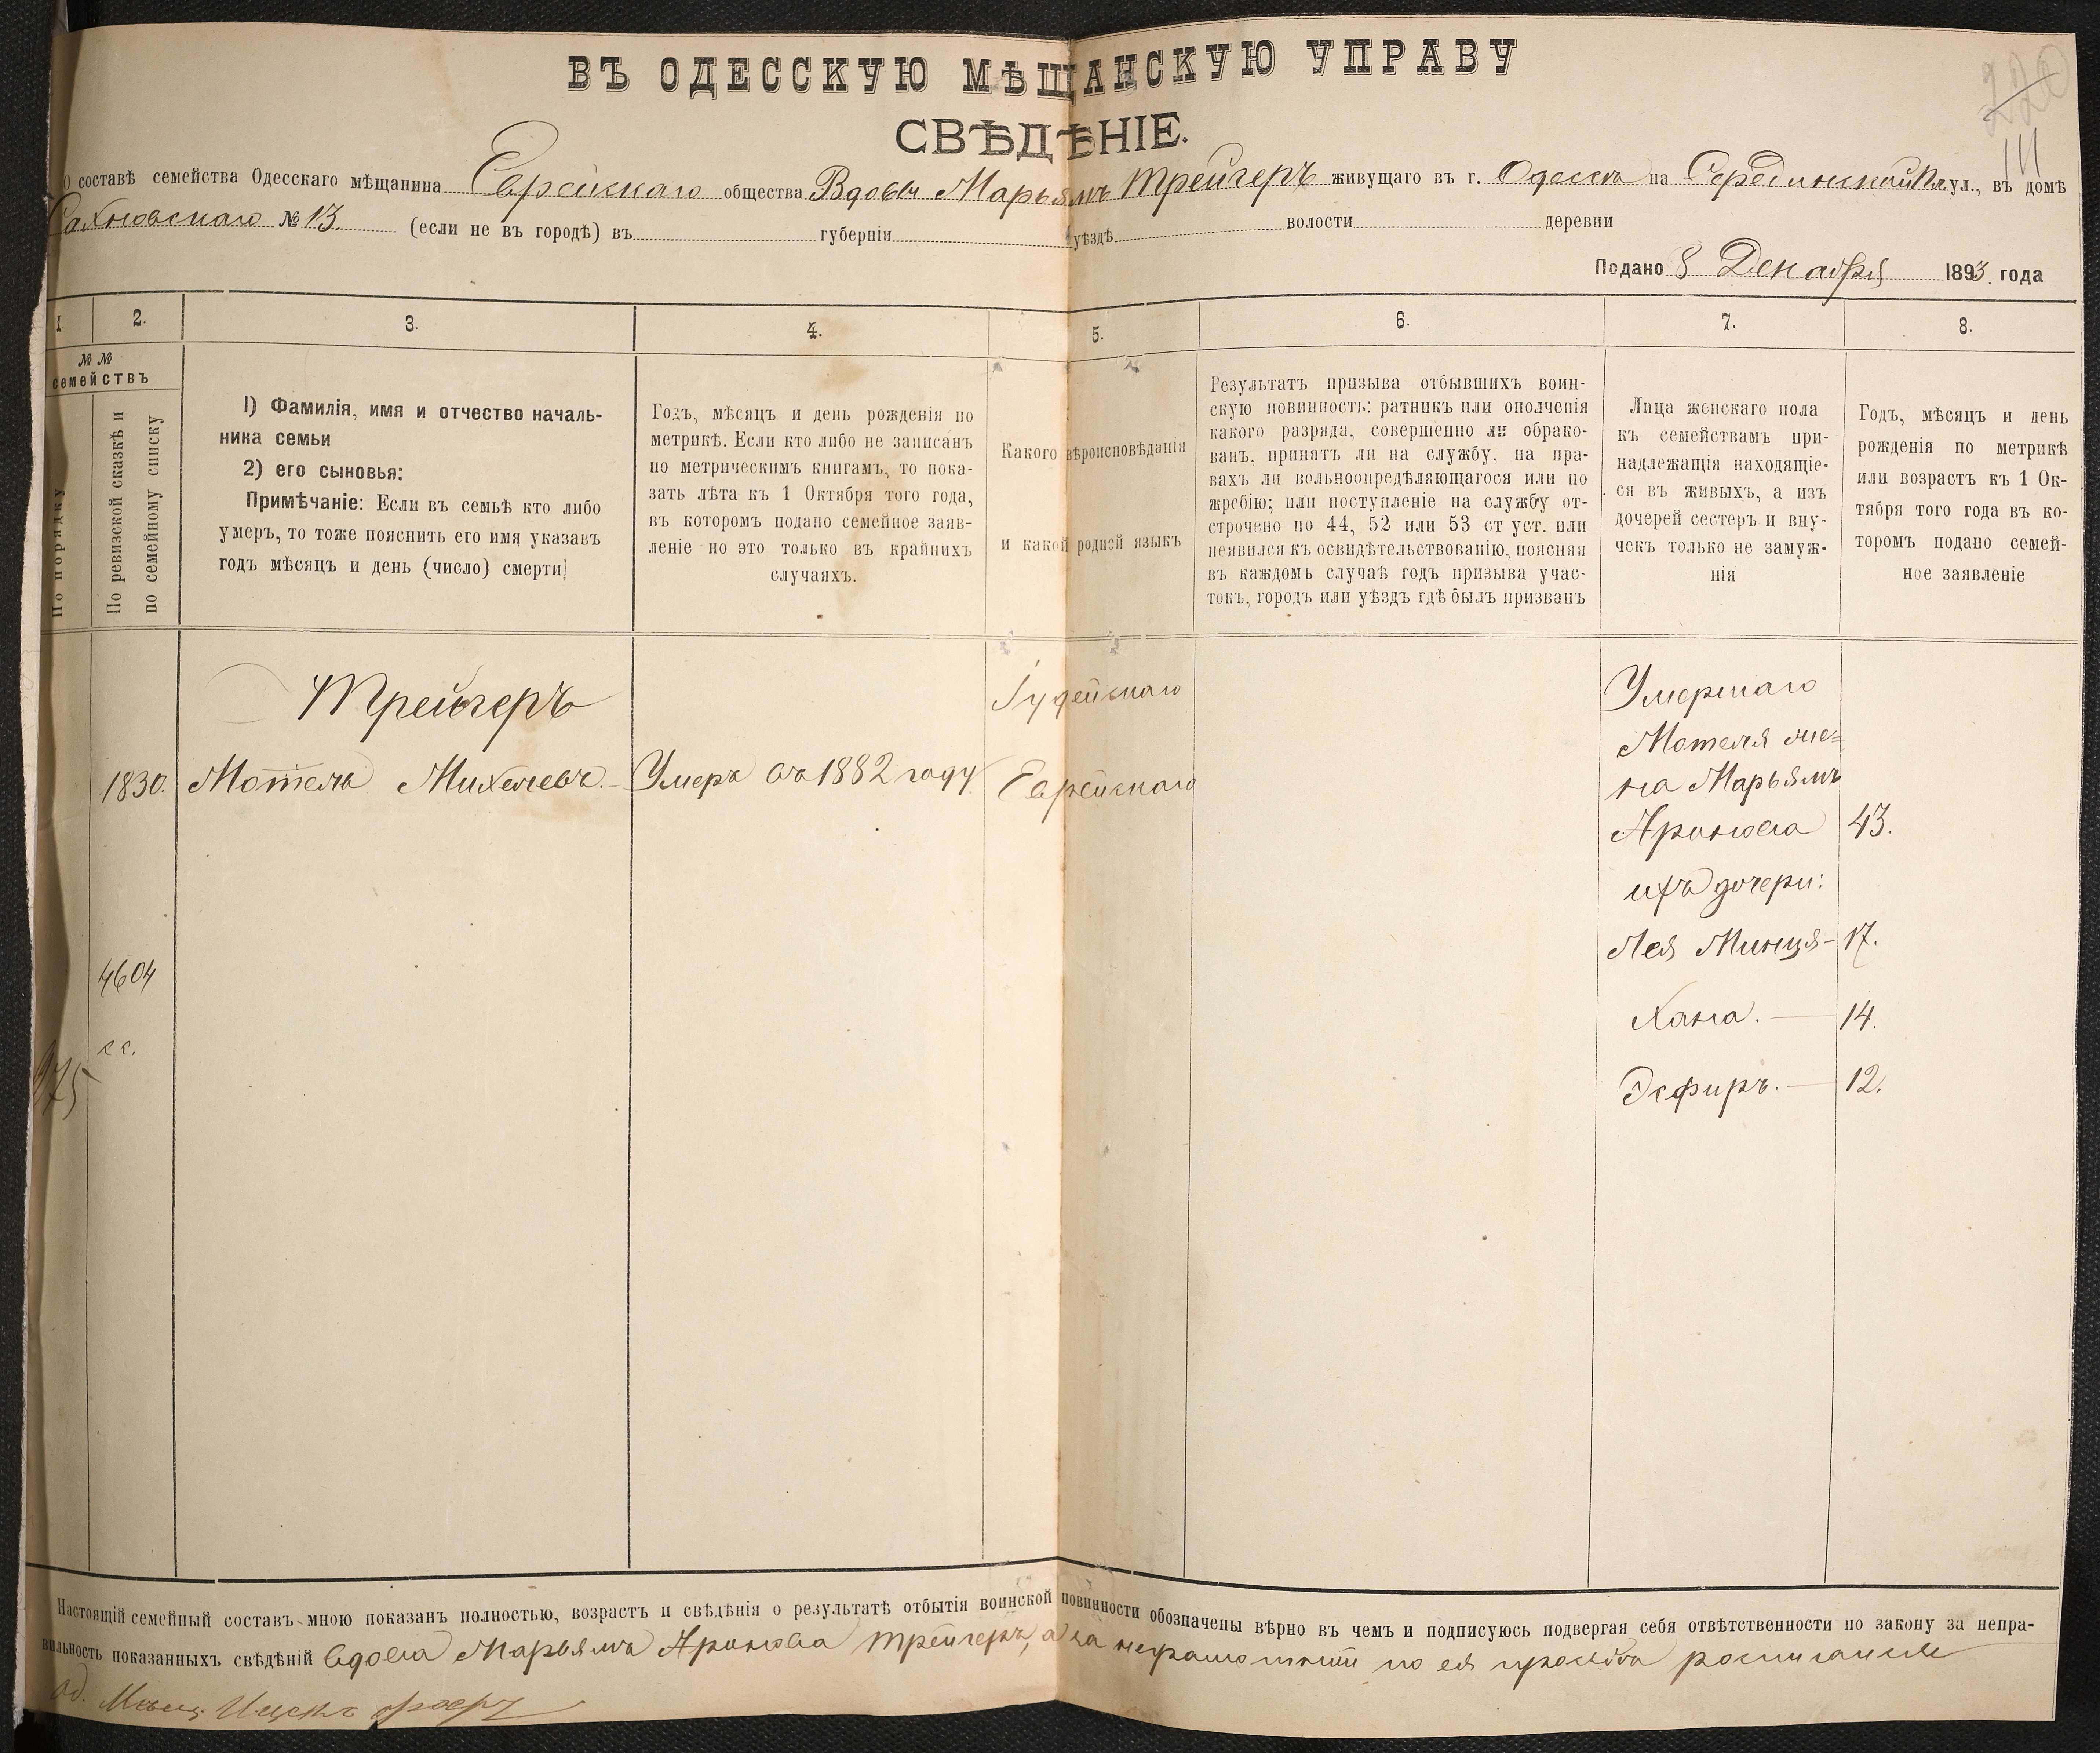 ВЪ ОДЕССКУЮ МѢЩАНСКУЮ УПРАВУ
СВѢДѢНІЕ.
111
О составѣ семейства Одесскаго мѣщанина Еврейскаго общества Вдовы Марьямъ Трейгеръ живущаго въ г. Одесса на Серединской ул., въ домѣ
Сахновскаго № 13. (если не въ городѣ) въ губерніи уѣздѣ волости деревни
Подано 8 Декабря 1893. года
1. 2. 3. 4. 5. 6. 7. 8.
№ №
семействъ
По порядку
По ревизской сказкѣ и
по семейному списку
1) Фамилія, имя и отчество началь-
ника семьи
2) его сыновья:
Примѣчаніе: Если въ семьѣ кто либо
умеръ, то тоже пояснить его имя указавъ
годъ мѣсяцъ и день (число) смерти
Годъ, мѣсяцъ и день рожденія по
метрикѣ. Если кто либо не записанъ
по метрическимъ книгамъ, то пока-
зать лѣта къ 1 Октября того года,
въ которомъ подано семейное заяв-
леніе но это только въ крайнихъ
случаяхъ.
Какого вѣроисповѣданія
и какой родной языкъ
Результатъ призыва отбывшихъ воин-
скую повинность: ратникъ или ополченія
какого разряда, совершенно ли обрако-
ванъ, принятъ ли на службу, на пра-
вахъ ли вольноопредѣляющагося или по
жребію; или поступленіе на службу от-
строчено по 44, 52 или 53 ст уст. или
неявился къ освидѣтельствованію, поясняя
въ каждомъ случаѣ годъ призыва учас-
токъ, городъ или уѣздъ гдѣ былъ призванъ
Лица женскаго пола
къ семействамъ при-
надлежащія находящіе-
ся въ живыхъ, а изъ
дочерей сестеръ и вну-
чекъ только не замуж-
нія
Годъ, мѣсяцъ и день
рожденія по метрикѣ
или возрастъ къ 1 Ок-
тября того года въ ко-
торомъ подано семей-
ное заявленіе
Трейгеръ
1830. Мотель Михелевъ. Умеръ въ 1882 году
Іудейскаго
Еврейскаго
Умершаго
Мотеля же-
на Марьямъ
Аронова 43.
ихъ дочери:
Лея Минця - 17.
Хана. — 14.
Эсфирь. — 12.
4604
с с.
Настоящій семейный составъ мною показанъ полностью, возрастъ и свѣдѣнія о результатѣ отбытія воинской повинности обозначены вѣрно въ чемъ и подписуюсь подвергая себя отвѣтственности по закону за непра-
вильность показанныхъ свѣдѣній вдова Марьямъ Аронова Трейгеръ, а за неграмотной по ея просьбѣ росписался
Од. Мѣщ. Ицекъ